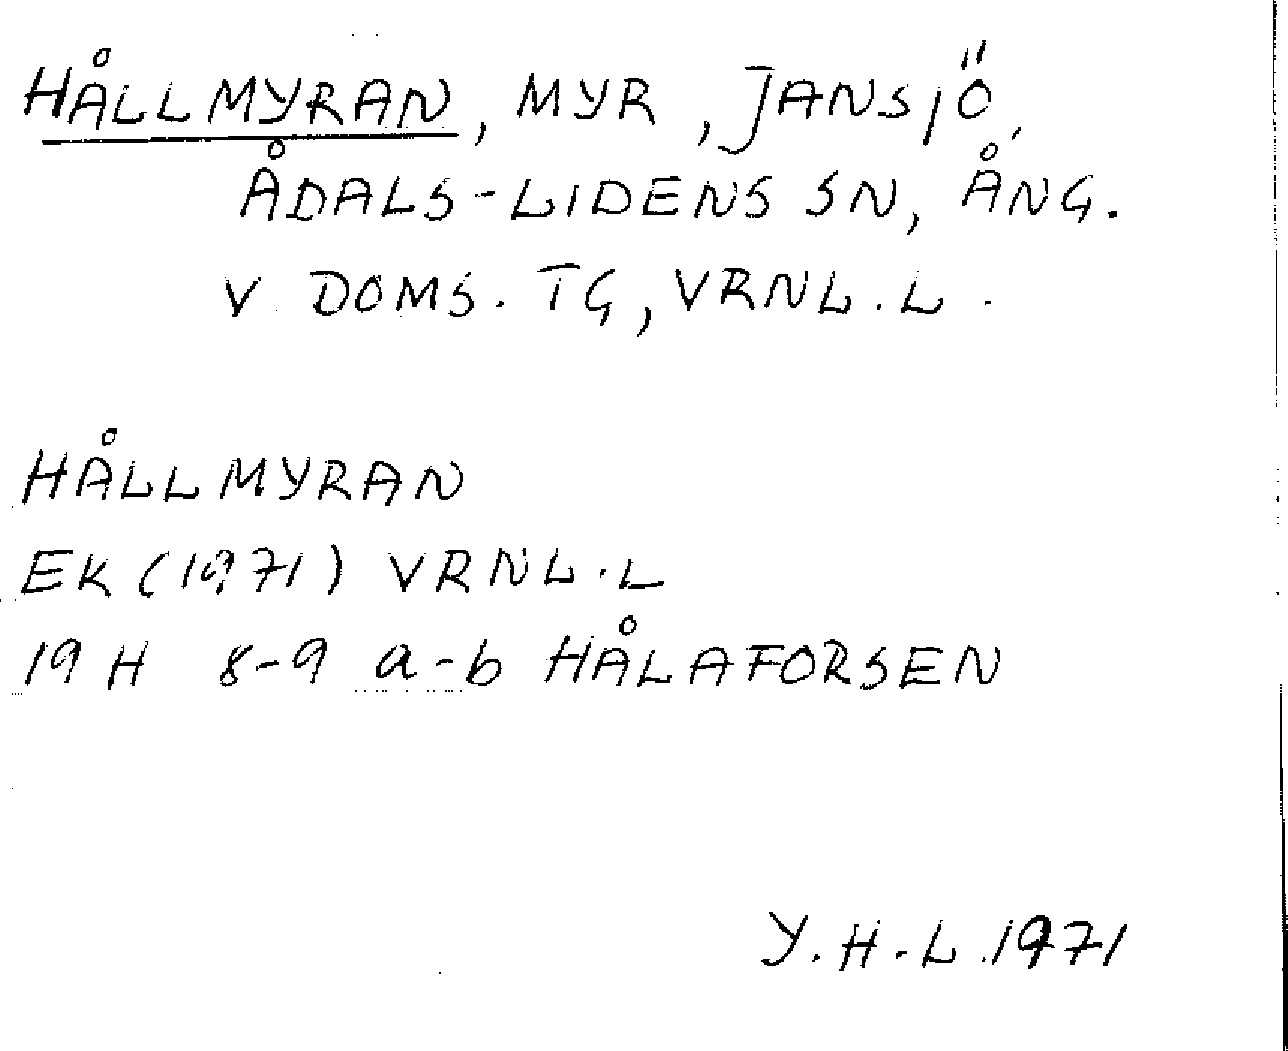 HÅLLMYRAN, MYR, JANSJÖ,
ÅDALS-LIDENS SN, ÅNG.
V DOMS. TG, VRNL. L.
HÅLLMYRAN
EK (1971) VRNL. L
19 H 8-9 a-b HÅLAFORSEN
Y. H-L. 1971